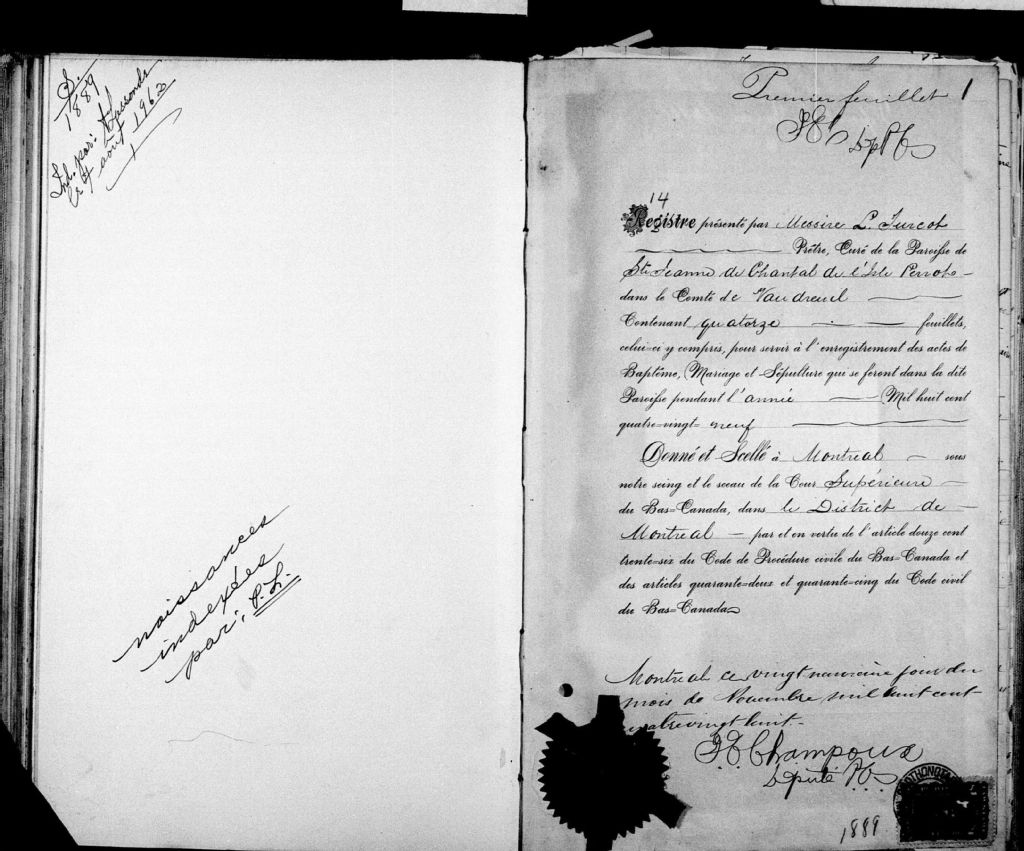 S.
1889
Ind. par:
le 7 août 1962
naissances
indexées
par: P.L.
Premier feuillet 1
J E C
Dep P C
14
Registre présenté par Messire L. Turcot
Prêtre, Curé de la Paroisse de
Ste Jeanne de Chantal de l'Isle Perrot
dans le Comté de Vaudreuil
Contenant quatorze feuillets,
celui-ci y compris, pour servir à l'enregistrement des actes de
Baptême, Mariage et Sépulture qui se feront dans la dite
Paroisse pendant l'année Mil huit cent
quatre=vingt= neuf
Donné et Scellé à Montréal sous
notre seing et le sceau de la Cour Supérieure
du Bas=Canada, dans le District de
Montréal par et en vertu de l'article douze cent
trente=six du Code de Procédure civile du Bas=Canada et
des articles quarante=deux et quarante=cinq du Code civil
du Bas=Canada
Montreal ce vingt neuvième jour du
mois de Novembre mil huit cent
quatrevingt huit.
J E Champoux
Député P.C.
1889